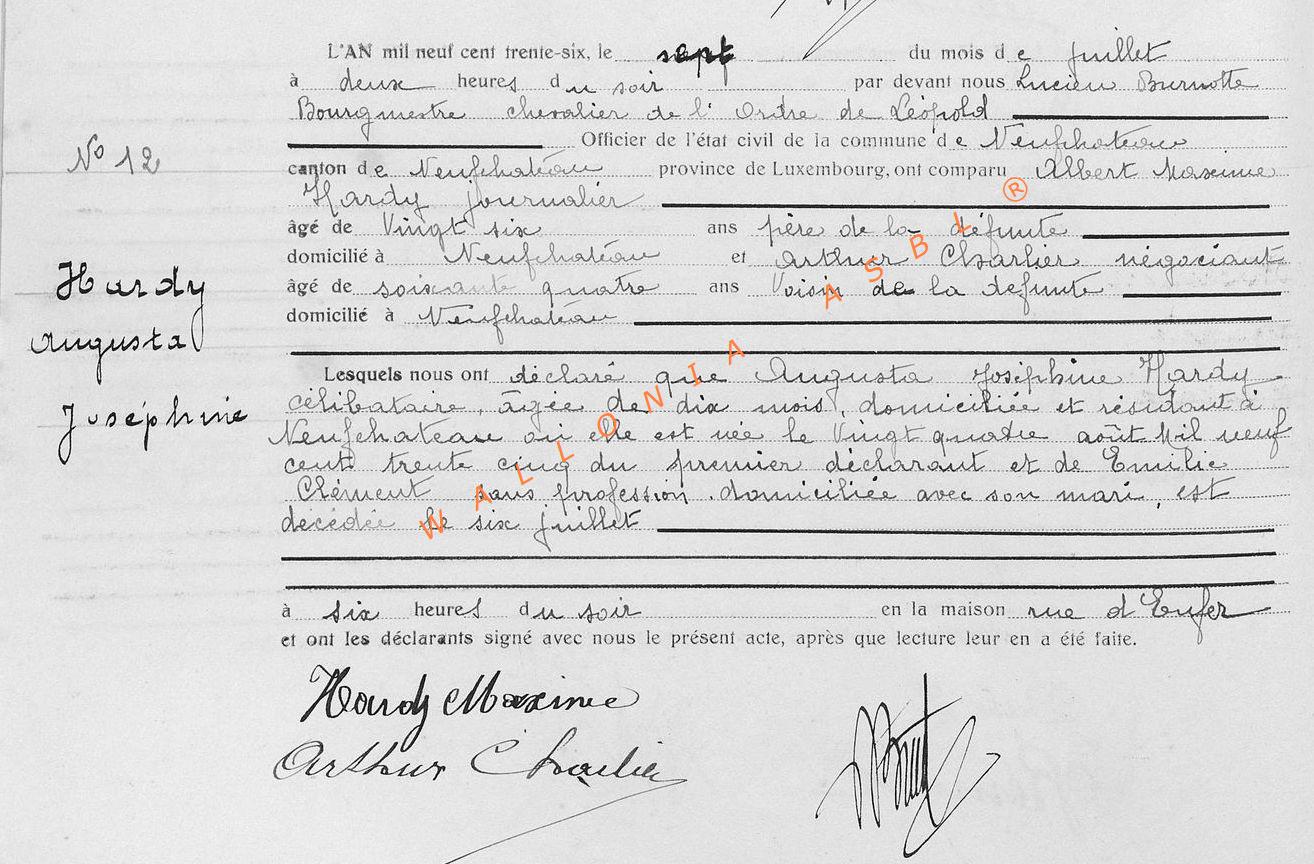 L'AN mil neuf cent trente-six, le sept du mois de juillet
à deux heures du soir par devant nous Lucien Burnotte
Bourgmestre chevalier de l'Ordre de Léopold
Officier de l'état civil de la commune de Neufchateau
N° 12
canton de Neufchateau province de Luxembourg, ont comparu Albert Maxime
Hardy journalier
âgé de Vingt six ans père de la défunte
domicilié à Neufchateau et Arthur Charlier négociant
Hardy
âgé de soixante quatre ans Voisin de la défunte
domicilié à Neufchateau
Augusta
Lesquels nous ont déclaré que Augusta Joséphine Hardy
Joséphine
célibataire, âgée de dix mois, domiciliée et résidant à
Neufchateau où elle est née le Vingt quatre août Mil neuf
cent trente cinq du premier déclarant et de Emilie
Clément sans profession domiciliée avec son mari, est
décédée le six juillet
à six heures du soir en la maison rue d'Enfer
et ont les déclarants signé avec nous le présent acte, après que lecture leur en a été faite.
Hardy Maxime
Arthur Charlier
WALLONIA ASBL ®